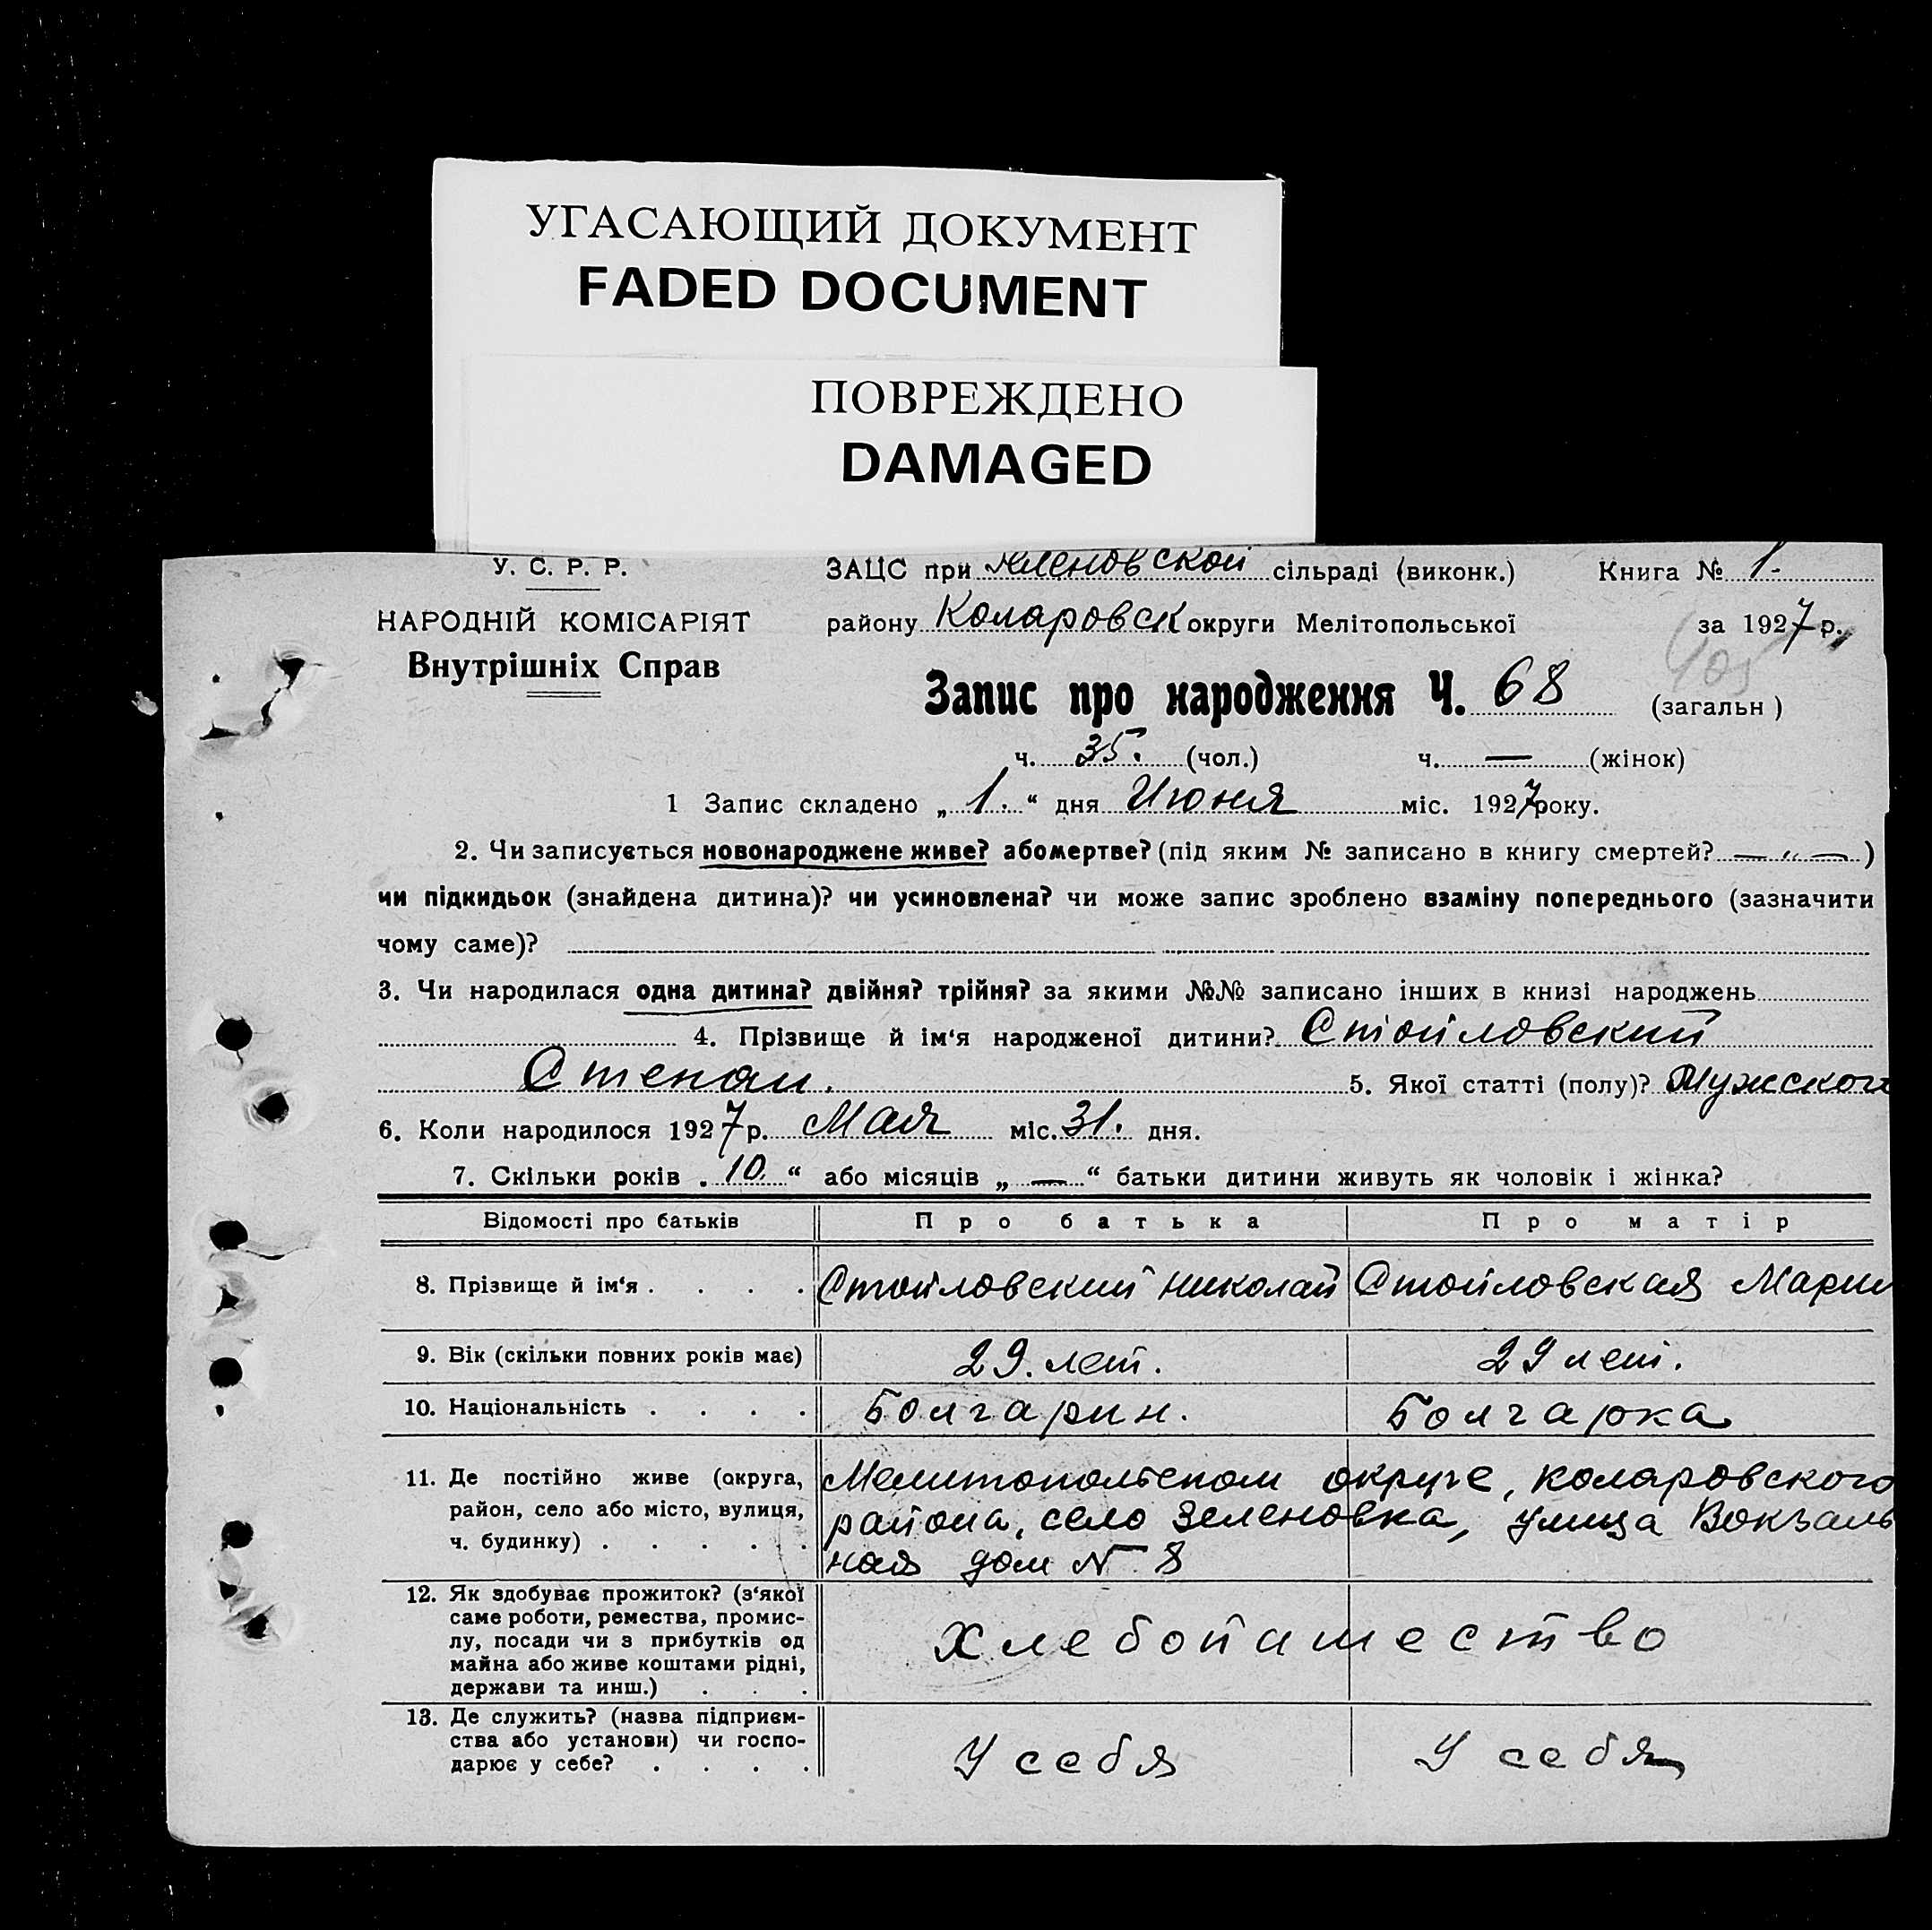 УГАСАЮЩИЙ ДОКУМЕНТ
FADED DOCUMENT
ПОВРЕЖДЕНО
DAMAGED
У. С. Р. Р.
ЗАЦС при леновской сільраді (виконк.) Книга № 1.
НАРОДНІЙ КОМІСАРІЯТ
району Коларовск округи Мелітопольської за 1927 р.
Внутрішніх Справ
Запис про народження Ч. 68 (загальн )
ч. 35. (чол.) ч. — (жінок)
1 Запис складено „ 1. “ дня Июня міс. 1927 року.
2. Чи записується новонароджене живе? або мертве? (під яким № записано в книгу смертей? — „ — )
чи підкидьок (знайдена дитина)? чи усиновлена? чи може запис зроблено взаміну попереднього (зазначити
чому саме)?
3. Чи народилася одна дитина? двійня? трійня? за якими №№ записано інших в книзі народжень
4. Прізвище й ім‘я народженої дитини? Стойловский
Степан. 5. Якої статті (полу)? Мужского
6. Коли народилося 1927 р. Мая міс. 31. дня.
7. Скільки років „ 10. “ або місяців „ — “ батьки дитини живуть як чоловік і жінка?
Відомості про батьків Про батька Про матір
8. Прізвище й ім‘я . . . . Стойловский Николай Стойловская Мари
9. Вік (скільки повних років має) 29. лет. 29 лет.
10. Національність . . . . Болгарин. Болгарка
11. Де постійно живе (округа, Мелитопольском округе, Коларовского
район, село або місто, вулиця, района, село Зеленовка, улица Вокзаль
ч. будинку) . . . . . ная дом № 8
12. Як здобуває прожиток? (з‘якої
саме роботи, ремества, промис-
лу, посади чи з прибутків од Хлебопашество
майна або живе коштами рідні,
держави та инш.) . . .
13. Де служить? (назва підприєм-
ства або установи) чи госпо- У себя У себя
дарює у себе? . . . .